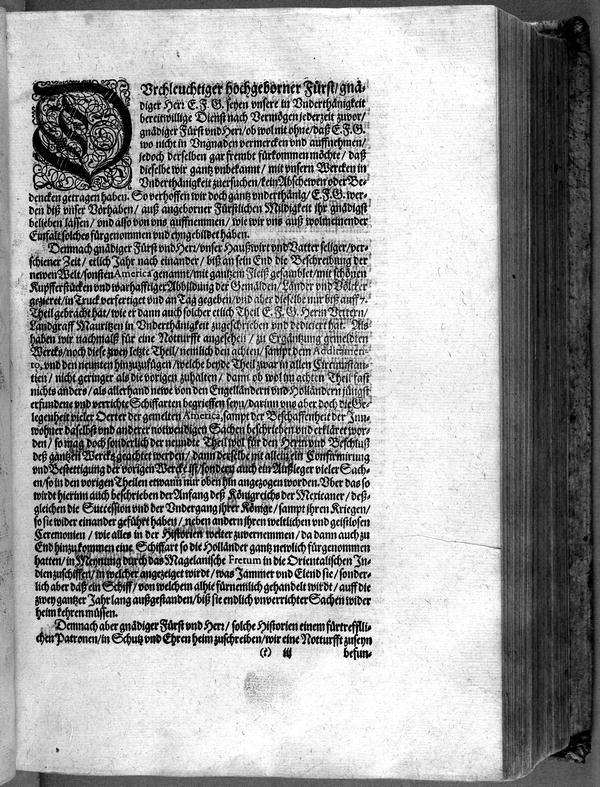 DVrchleuchtiger hochgeborner Fürst/ gnä-
diger Herr E. F. G. seyen vnsere in Vnderthänigkeit
bereitwillige Dienst nach Vermögen jederzeit zuvor/
gnädiger Fürst vnd Herr/ ob wol nit ohne/ daß E. F. G.
wo nicht in Vngnaden vermercken vnd auffnehmen/
jedoch derselben gar frembt fürkommen möchte/ daß
dieselbe wir gantz vnbekannt/ mit vnsern Wercken in
Vnderthänigkeit zuersuchen/ kein Abschewen oder Be-
dencken getragen haben. So verhoffen wir doch gantz vnderthänig/ E. F. G. wer-
den diß vnser Vorhaben/ auß angeborner Fürstlichen Mildigkeit ihr gnädigst
belieben lassen/ vnd also von vns auffnemmen/ wie wir vns auß wolmeinender
Einfalt solches fürgenommen vnd eyngebildet haben.
Demnach gnädiger Fürst vnd Herr/ vnser Haußwirt vnd Vatter seliger/ ver-
schiener Zeit/ etlich Jahr nach einander/ biß an sein End die Beschreibung der
newen Welt/ sonsten America genannt/ mit gantzem Fleiß gesamblet/ mit schönen
Kupfferstücken vnd warhafftiger Abbildung der Gemälden/ Länder vnd Völcker
gezieret/ in Truck verfertiget vnd an Tag gegeben/ vnd aber dieselbe nur biß auff 7.
Theil gebracht hat/ wie er dann auch solcher etlich Theil E. F. G. Herrn Vettern/
Landgraff Mauritzen in Vnderthänigkeit zugeschrieben vnd dediciert hat. Als
haben wir nachmalß für eine Notturfft angesehen/ zu Ergäntzung gemeldten
Wercks/ noch diese zwey letzte Theil/ nemlich den achten/ sampt dem Additamen-
to, vnd den neunten hinzuzufügen/ welche beyde Theil zwar in allen Circumstan-
tien/ nicht geringer als die vorigen zuhalten/ dann ob wol im achten Theil fast
nichts anders/ als allerhand newe von den Engelländern vnd Holländern jüngst
erfundene vnd verrichte Schiffarten begrieffen seyn/ darinn vns aber doch die Ge-
legenheit vieler Oerter der gemelten America, sampt der Beschaffenheit der Inn-
wohner daselbst vnd anderer notwendigen Sachen beschrieben vnd erkläret wor-
den/ so mag doch sonderlich der neundte Theil wol für den Herrn vnd Beschluß
deß gantzen Wercks geachtet werden/ dann derselbe nit allein ein Confirmirung
vnd Bestettigung der vorigen Wercke ist/ sondern auch ein Außleger vieler Sach-
en/ so in den vorigen Theilen etwann nur oben hin angezogen worden. Vber das so
wirdt hierinn auch beschrieben der Anfang deß Königreichs der Mexicaner/ deß-
gleichen die Succession vnd der Vndergang ihrer Könige/ sampt ihren Kriegen/
so sie wider einander geführt haben/ neben andern ihren weltlichen vnd geistlosen
Ceremonien/ wie alles in der Historien weiter zuvernemmen/ da dann auch zu
End hinzu kommen eine Schiffart so die Holländer gantz newlich fürgenommen
hatten/ in Meynung durch das Magelanische Fretum in die Orientalischen In-
dien zuschiffen/ in welcher angezeiget wirdt/ was Jammer vnd Elend sie/ sonder-
lich aber daß ein Schiff/ von welchem alhie fürnemlich gehandelt wirdt/ auff die
zwey gantzer Jahr lang außgestanden/ biß sie endlich vnverrichter Sachen wider
heim kehren müssen.
Demnach aber gnädiger Fürst vnd Herr/ solche Historien einem fürtreffli-
chen Patronen/ in Schutz vnd Ehren heim zuschreiben/ wir eine Notturfft zuseyn
(?) iij befun-